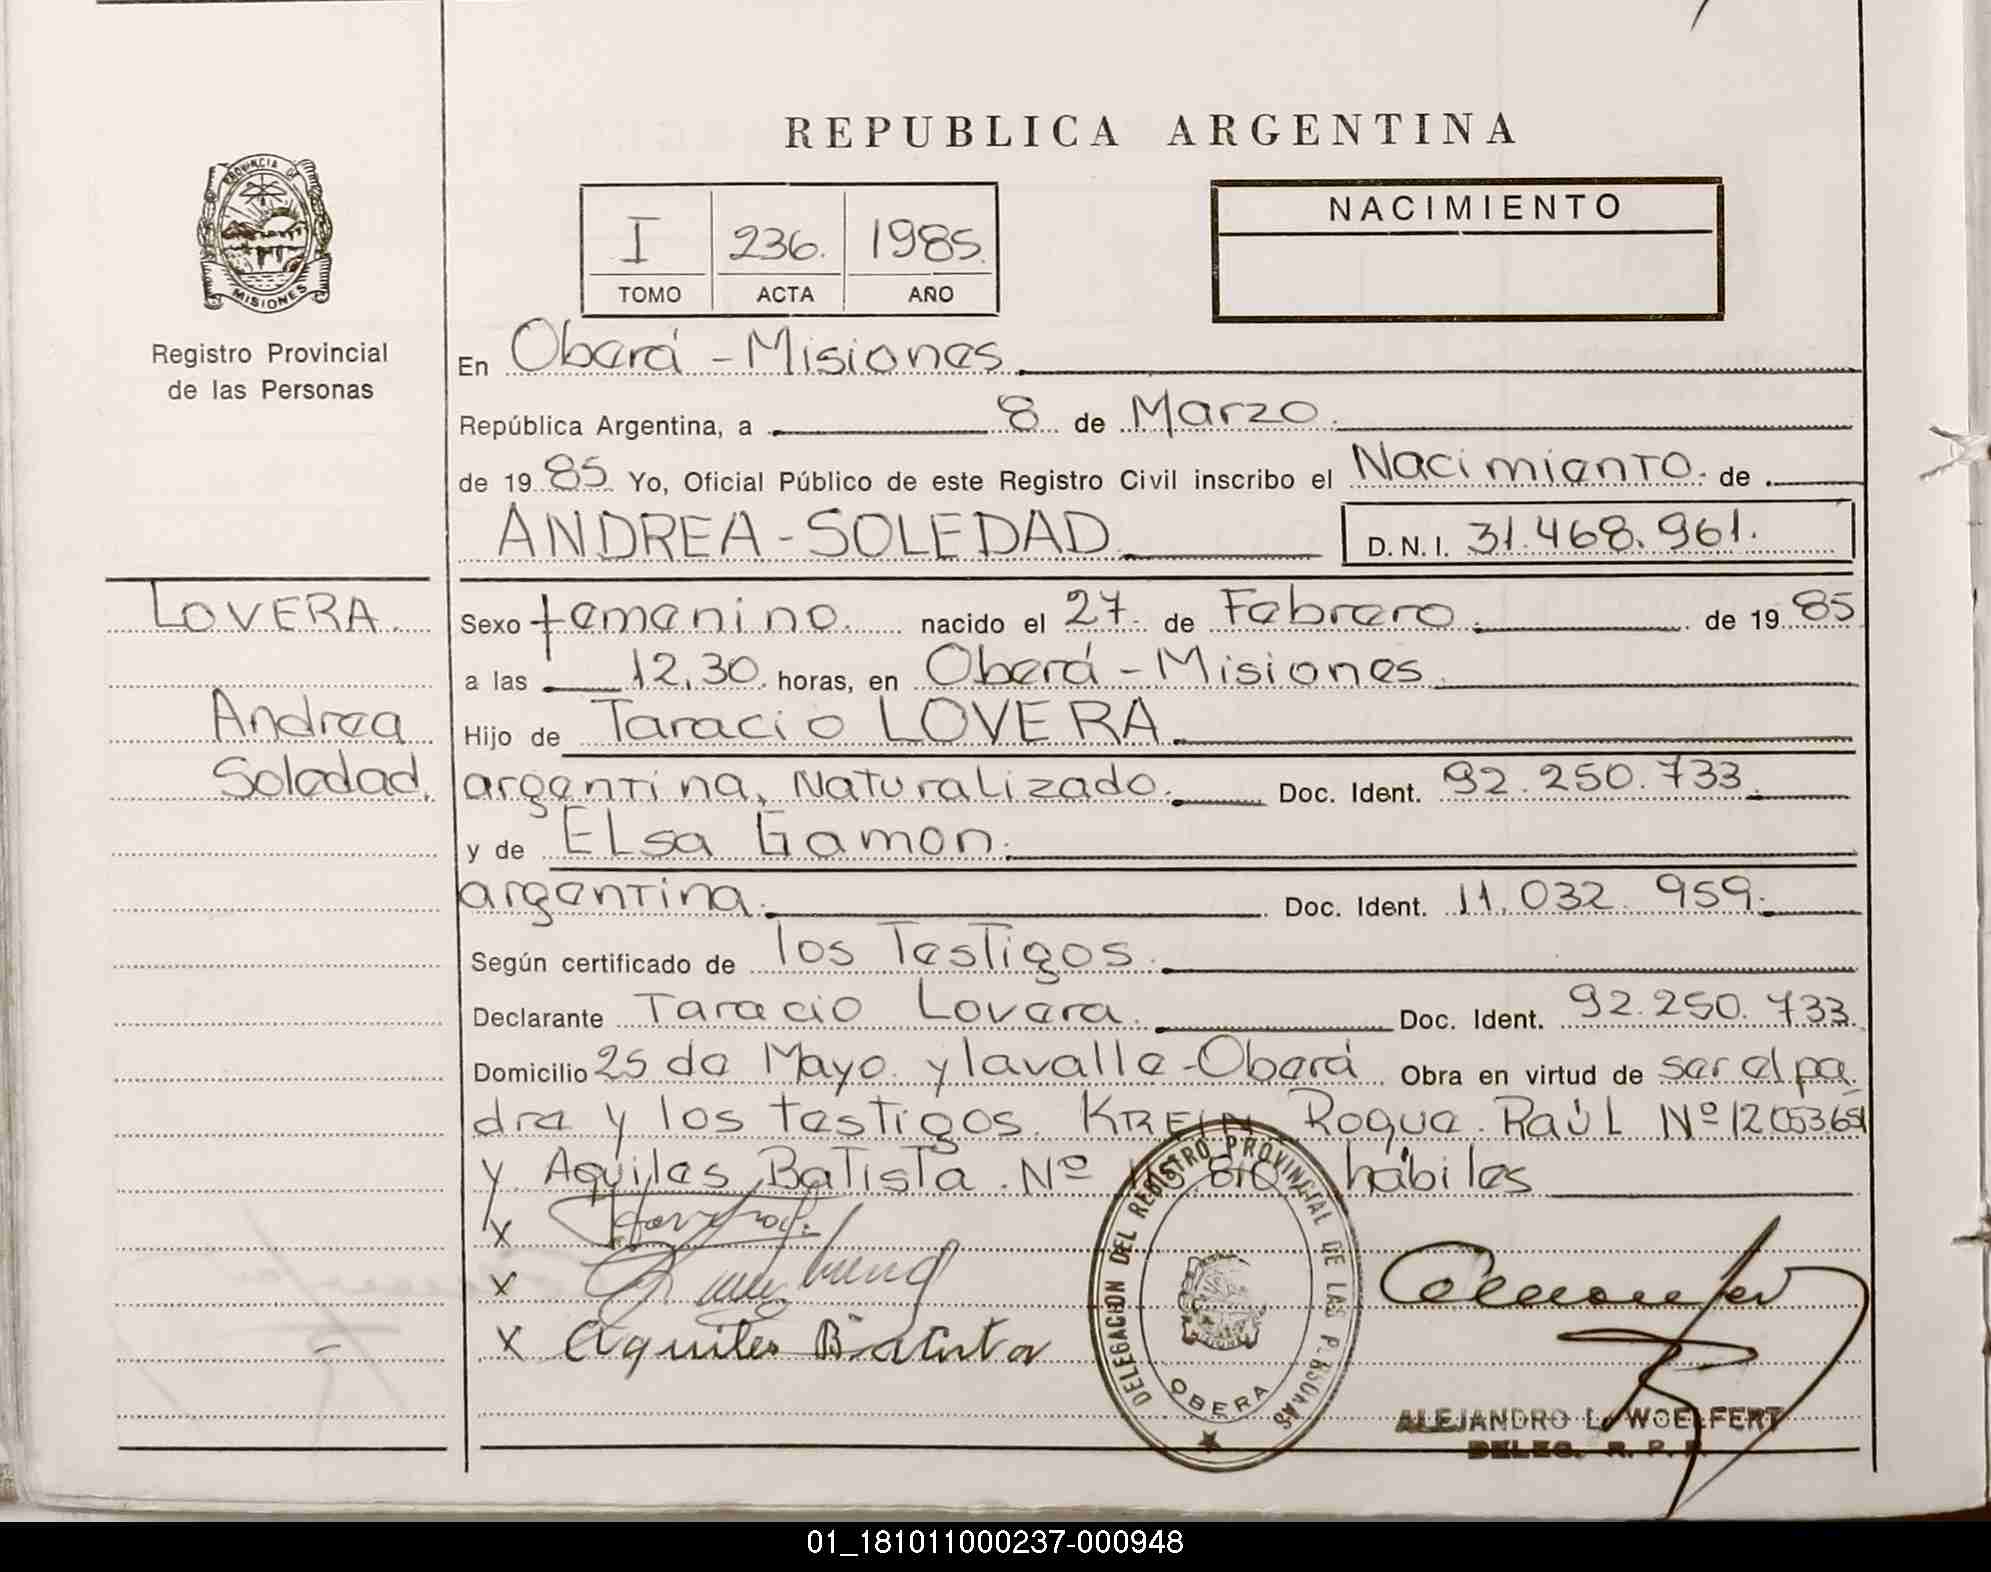 REPUBLICA ARGENTINA
PROVINCIA DE
MISIONES
Registro Provincial
de las Personas
I 236. 1985.
TOMO ACTA AÑO
NACIMIENTO
En Oberá - Misiones
República Argentina, a 8 de Marzo.
de 1985 Yo, Oficial Público de este Registro Civil inscribo el Nacimiento. de
ANDREA - SOLEDAD
D.N.I. 31.468.961.
LOVERA.
Andrea
Soledad.
Sexo femenino. nacido el 27. de Febrero. de 1985
a las 12,30. horas, en Oberá - Misiones
Hijo de Taracio LOVERA
argentina, Naturalizado. Doc. Ident. 92.250.733
y de ELsa Gamon.
argentina. Doc. Ident. 11.032.959.
Según certificado de los Testigos
Declarante Taracio Lovera. Doc. Ident. 92.250.733
Domicilio 25 de Mayo y lavalle - Oberá Obra en virtud de ser el pa
dre y los testigos. KREIN Roque Raúl Nº
y Aquiles Batista. Nº hábiles
x
x
x Aquiles Batista
DELEGACION DEL REGISTRO PROVINCIAL DE LAS PERSONAS
OBERA
ALEJANDRO L. WOELFERT
DELEG. R. P. P.
01_181011000237-000948